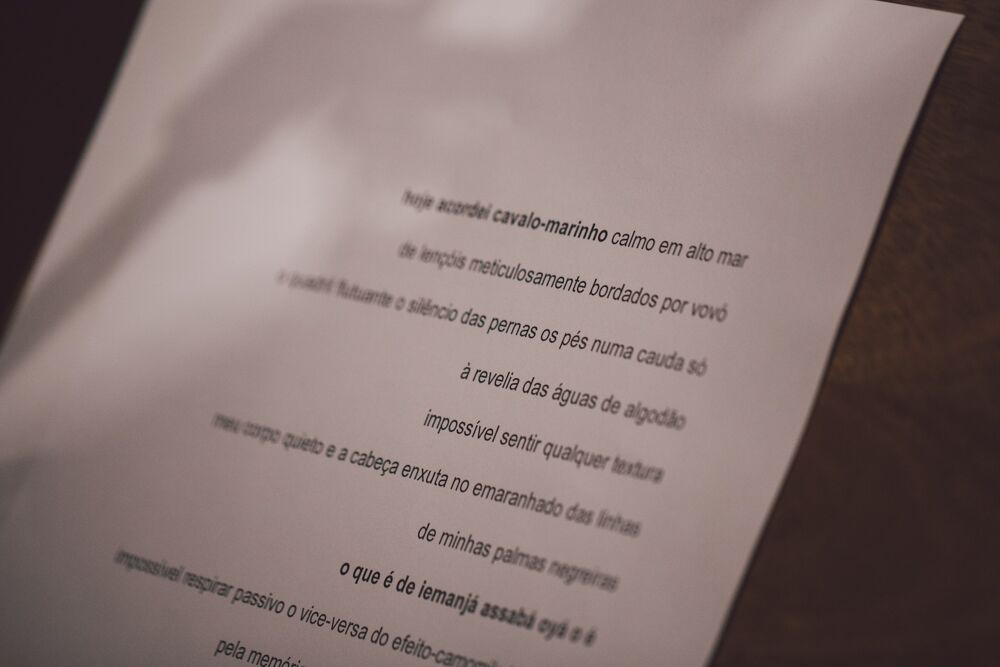 hoje acordei cavalo-marinho calmo em alto mar
de lençóis meticulosamente bordados por vovó
o quadril flutuante o silêncio das pernas os pés numa cauda só
à revelia das águas de algodão
impossível sentir qualquer textura
meu corpo quieto e a cabeça enxuta no emaranhado das linhas
de minhas palmas negreiras
o que é de iemanjá assabá oyá o é
impossível respirar passivo o vice-versa do
pela